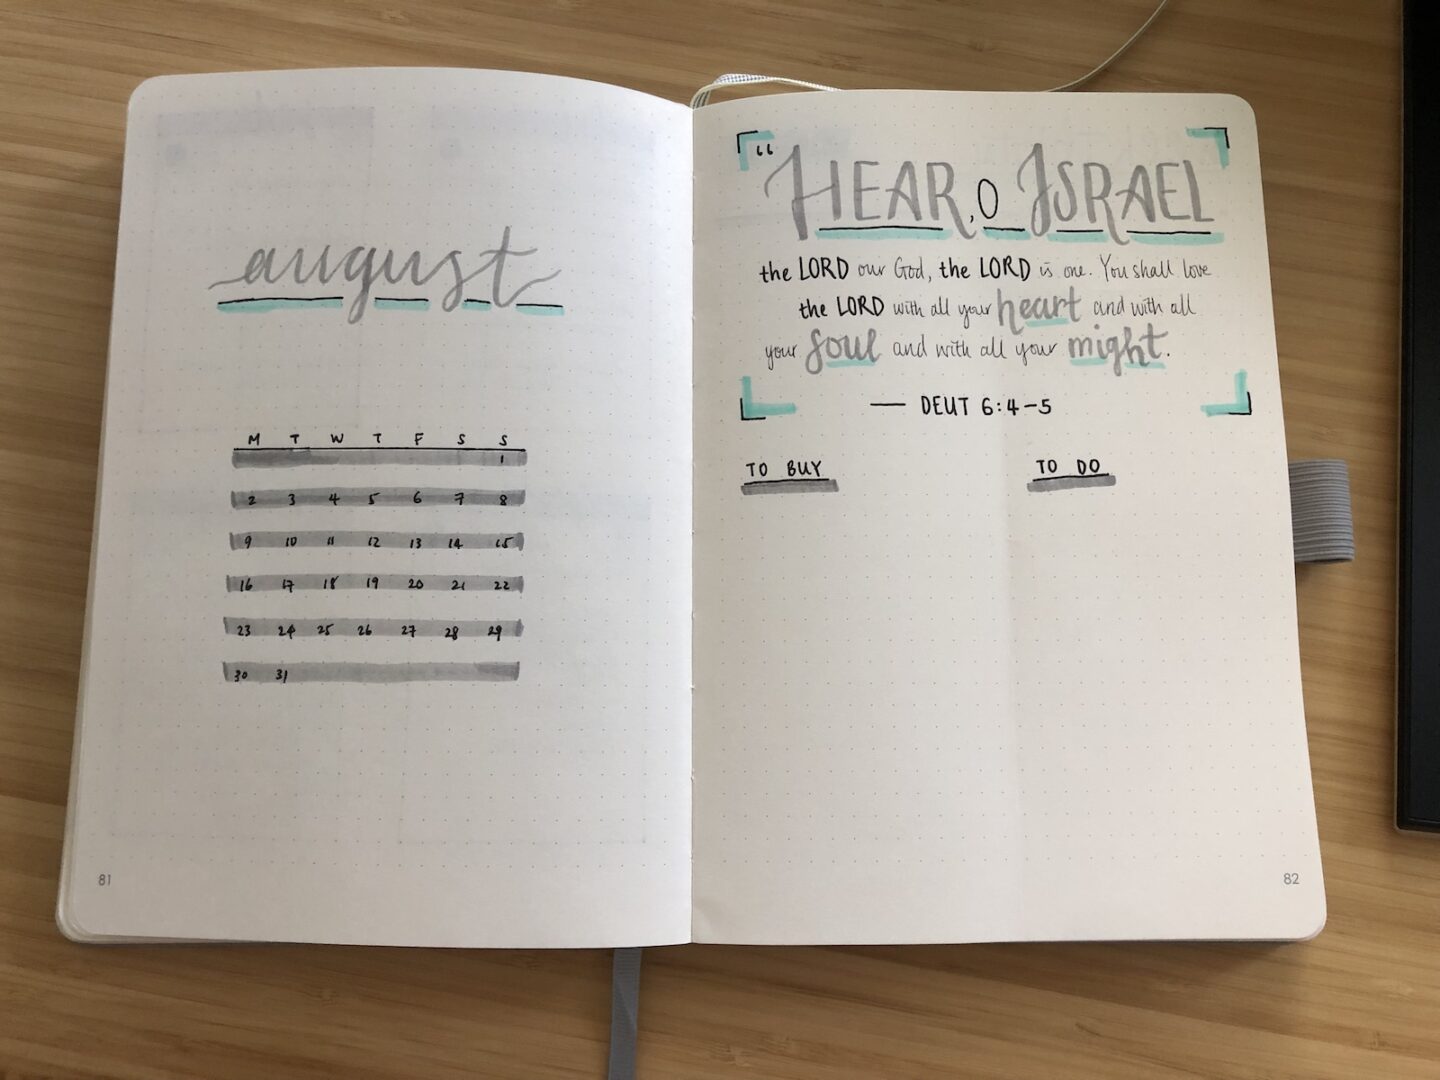 august
M T W T F S S
1
2 3 4 5 6 7 8
9 10 11 12 13 14 15
16 17 18 19 20 21 22
23 24 25 26 27 28 29
30 31
81
“HEAR, O ISRAEL
the LORD our God, the LORD is one. You shall love
the LORD with all your heart and with all
your soul and with all your might.
— DEUT 6:4-5
TO BUY
TO DO
82